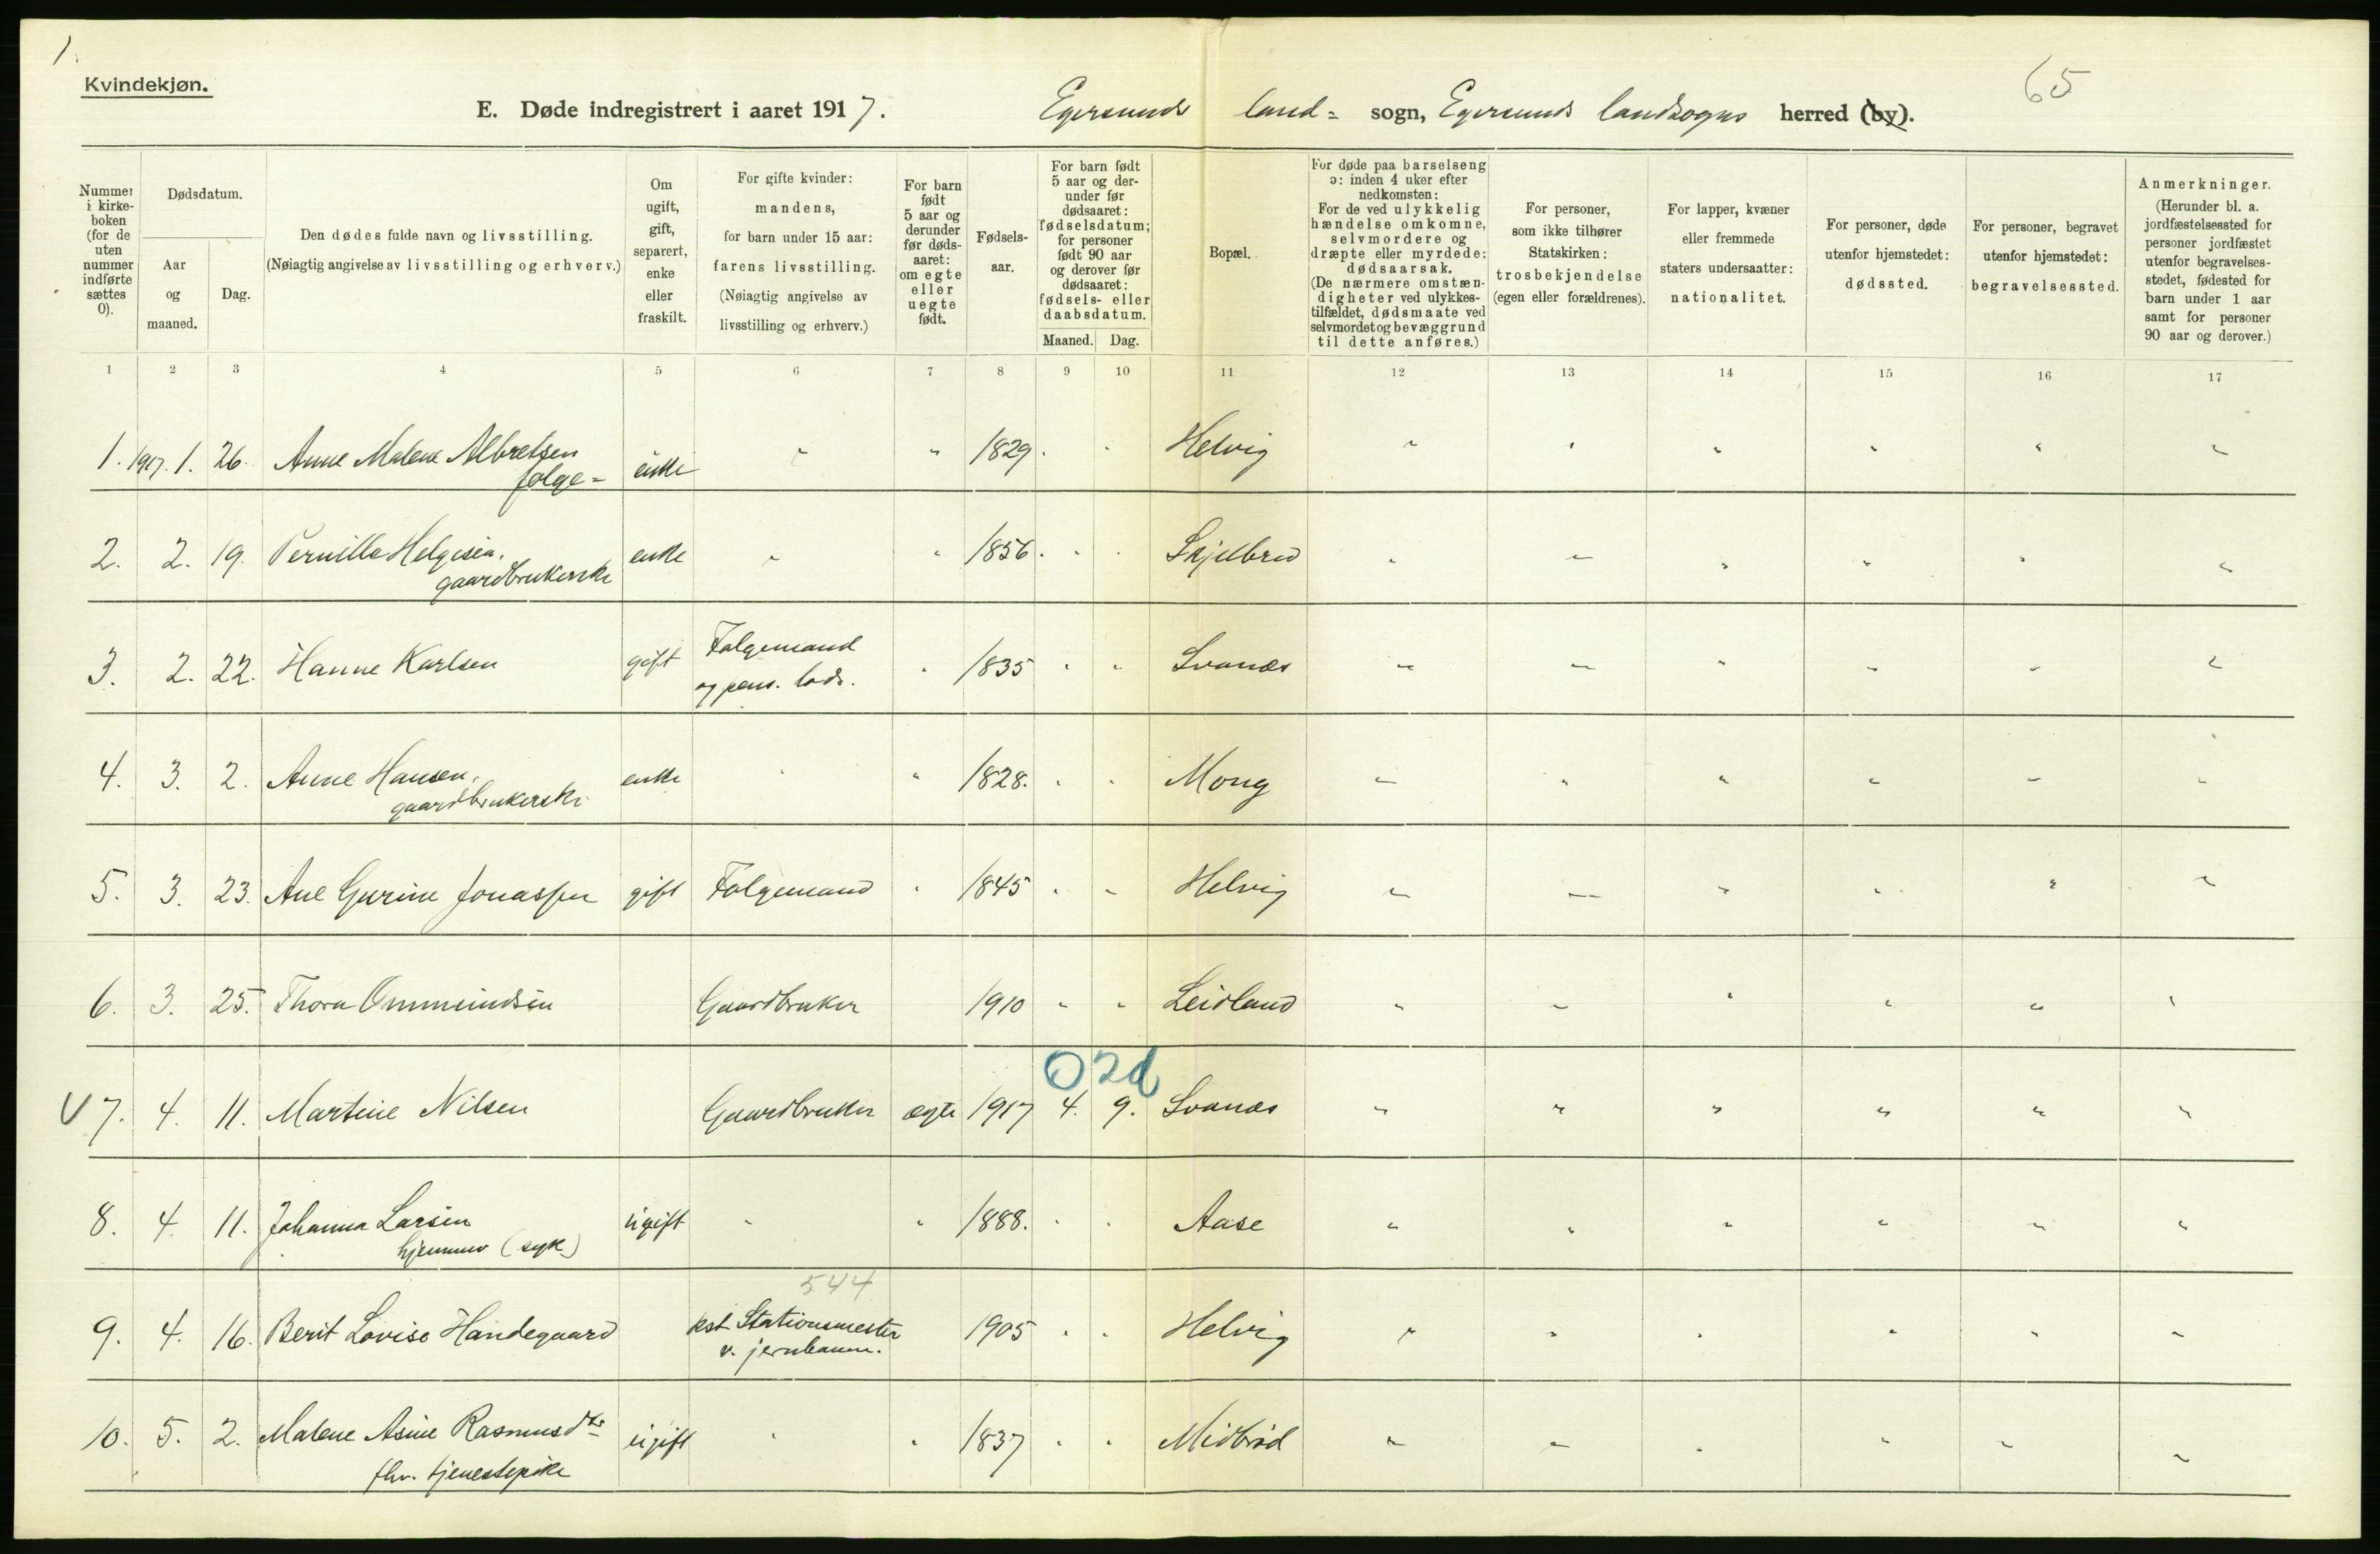 1.
Kvindekjøn.
65
E. Døde indregistrert i aaret 1917. Egersunds land= sogn, Egersunds landsogns herred (by).
Nummer i kirkeboken (for de uten nummer indførte sættes 0).
Dødsdatum.
Aar og maaned.
Dag.
Den dødes fulde navn og livsstilling.
(Nøiagtig angivelse av livsstilling og erhverv.)
Om ugift, gift, separert, enke eller fraskilt.
For gifte kvinder: mandens, for barn under 15 aar: farens livsstilling. (Nøiagtig angivelse av livsstilling og erhverv.)
For barn født 5 aar og derunder før dødsaaret: om egte eller uegte født.
Fødselsaar.
For barn født 5 aar og derunder før dødsaaret: fødselsdatum; for personer født 90 aar og derover før dødsaaret: fødsels- eller daabsdatum.
Maaned. Dag.
Bopæl.
For døde paa barselseng ɔ: inden 4 uker efter nedkomsten: For de ved ulykkelig hændelse omkomne, selvmordere og dræpte eller myrdede: dødsaarsak. (De nærmere omstændigheter ved ulykkestilfældet, dødsmaate ved selvmordet og bevæggrund til dette anføres.)
For personer, som ikke tilhører Statskirken: trosbekjendelse (egen eller forældrenes).
For lapper, kvæner eller fremmede staters undersaatter: nationalitet.
For personer, døde utenfor hjemstedet: dødssted.
For personer, begravet utenfor hjemstedet: begravelsessted.
Anmerkninger. (Herunder bl. a. jordfæstelsessted for personer jordfæstet utenfor begravelsesstedet, fødested for barn under 1 aar samt for personer 90 aar og derover.)
1 2 3 4 5 6 7 8 9 10 11 12 13 14 15 16 17
1. 1917. 1. 26. Anne Malene Albretsen enke " " 1829. Helvig
folge=
2. 2. 19. Pernille Helgesen, enke " " 1856. Skjelbred
gaardbrukerske
3. 2. 22. Hanne Karlsen gift Folgemand " 1835 Svanes
og pens. lods.
4. 3. 2. Anne Hansen, enke " " 1828. Mong
gaardbrukerske
5. 3. 23. Ane Gurine Jonassen gift Folgemand " 1845 Helvig
6. 3. 25. Thora Ommundsen Gaardbruker 1910 Leidland
0 2d
V 7. 4. 11. Martine Nilsen Gaardbruker egte 1917 4. 9. Svanes
8. 4. 11. Johanna Larsen ugift " " 1888. Aase
hjemme (syk)
544
9. 4. 16. Berit Lovise Handegaard kst Stationsmester 1905 Helvig
v. jernbanen.
10. 5. 2. Malene Asine Rasmusdtr ugift " " 1837 Midbrød
fhv. tjenestepike